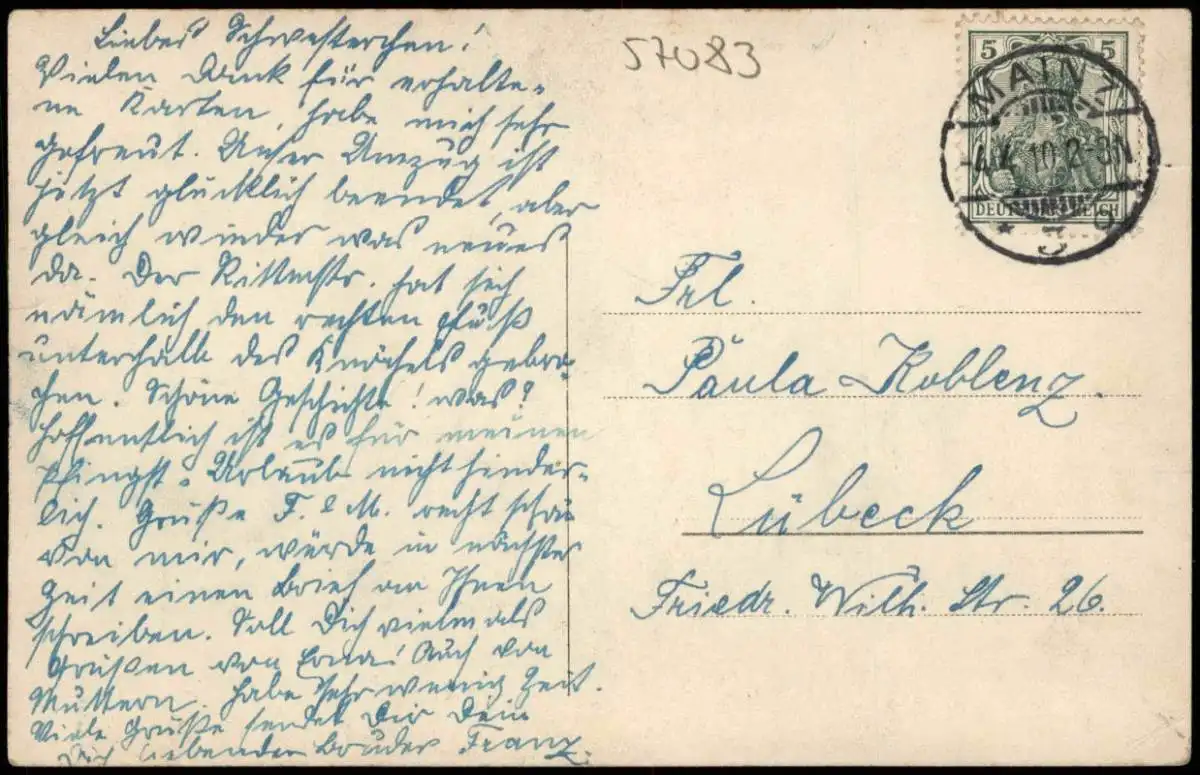 Liebes Schwesterchen!
Vielen Dank für erhalte-
ne Karten, habe mich sehr
gefreut. Unser Umzug ist
jetzt glücklich beendet, aber
gleich wieder was neues
da. Der Rittmstr. hat sich
nämlich den rechten Fuß
unterhalb des Knöchels gebro-
chen. Schöne Geschichte! was?
Hoffentlich ist es für meinen
Pfingst-Urlaub nicht hinder-
lich. Grüße F. & M. recht schön
von mir, würde in nächster
Zeit einen Brief an Ihnen
schreiben. Soll Dich vielmals
Grüßen von Erna! Auch von
Muttern. Habe sehr wenig Zeit.
Viele Grüße sendet Dir Dein
Dich liebenden Bruder Franz.
57083
5 5
MAINZ
10.2-3N
DEUTSCHES REICH
* 3
Frl.
Paula Koblenz.
Lübeck
Friedr. Wilh. Str. 26.